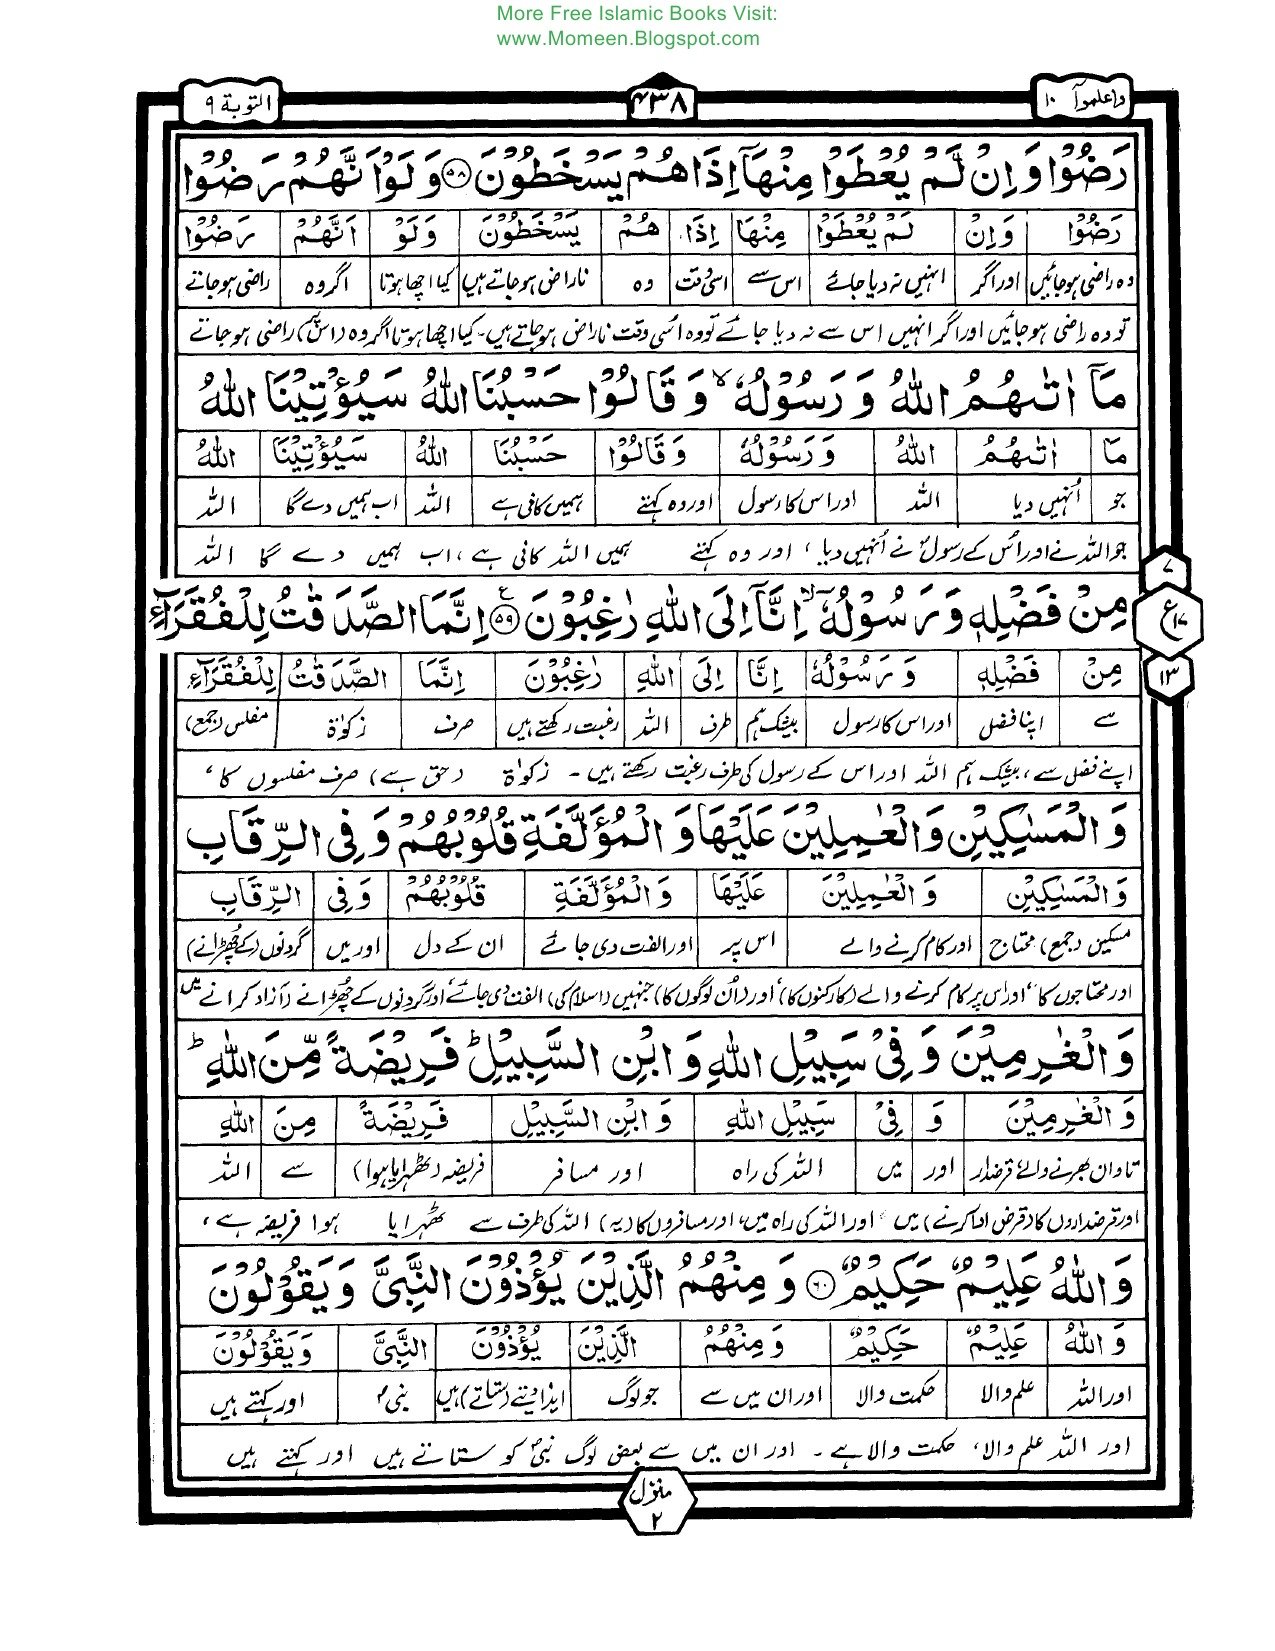 More Free Islamic Books Visit:
www.Momeen.Blogspot.com
واعلموآ ١٠
۴۳۸
التوبة ٩
رَضُوْا وَاِنْ لَّمْ يُعْطَوْا مِنْهَاۤ اِذَا هُمْ يَسْخَطُوْنَ ۵۸ وَلَوْ اَنَّهُمْ رَضُوْا
رَضُوْا وَاِنْ لَمْ يُعْطَوْا مِنْهَا اِذَا هُمْ يَسْخَطُوْنَ وَلَوْ اَنَّهُمْ رَضُوْا
وہ راضی ہوجائیں اور اگر انہیں نہ دیا جائے اس سے اسی وقت وہ ناراض ہوجاتے ہیں کیا اچھا ہوتا اگر وہ راضی ہوجاتے
تو وہ راضی ہو جائیں اور اگر انہیں اس سے نہ دیا جائے تو وہ اسی وقت ناراض ہو جاتے ہیں۔ کیا اچھا ہوتا اگر وہ (اس پر) راضی ہو جاتے
مَاۤ اٰتٰىهُمُ اللهُ وَرَسُوْلُهٗ ۙ وَقَالُوْا حَسْبُنَا اللهُ سَيُؤْتِيْنَا اللهُ
مَا اٰتٰىهُمُ اللهُ وَرَسُوْلُهٗ وَقَالُوْا حَسْبُنَا اللهُ سَيُؤْتِيْنَا اللهُ
جو اُنہیں دیا اللہ اور اس کا رسول اور وہ کہتے ہمیں کافی ہے اللہ اب ہمیں دے گا اللہ
جو اللہ نے اور اُس کے رسولؐ نے اُنہیں دیا، اور وہ کہتے ہمیں اللہ کافی ہے، اب ہمیں دے گا اللہ
مِنْ فَضْلِهٖ وَرَسُوْلُهٗۤ ۙ اِنَّاۤ اِلَى اللهِ رٰغِبُوْنَ ۵۹ ع اِنَّمَا الصَّدَقٰتُ لِلْفُقَرَآءِ
٧
ع ١٧
١٣
مِنْ فَضْلِهٖ وَرَسُوْلُهٗ اِنَّا اِلَى اللهِ رٰغِبُوْنَ اِنَّمَا الصَّدَقٰتُ لِلْفُقَرَآءِ
سے اپنا فضل اور اس کا رسول بیشک ہم طرف اللہ رغبت رکھتے ہیں صرف زکوٰۃ مفلس (جمع)
اپنے فضل سے، بیشک ہم اللہ اور اس کے رسول کی طرف رغبت رکھتے ہیں ۔ زکوٰۃ (حق ہے) صرف مفلسوں کا ،
وَالْمَسٰكِيْنِ وَالْعٰمِلِيْنَ عَلَيْهَا وَالْمُؤَلَّفَةِ قُلُوْبُهُمْ وَفِي الرِّقَابِ
وَالْمَسٰكِيْنِ وَالْعٰمِلِيْنَ عَلَيْهَا وَالْمُؤَلَّفَةِ قُلُوْبُهُمْ وَفِي الرِّقَابِ
مسکین (جمع) محتاج اور کام کرنے والے اس پر اور الفت دی جائے ان کے دل اور میں گردنوں (کے چھڑانے)
اور محتاجوں کا، اور اس پر کام کرنے والے (کارکنوں کا)، اور (ان لوگوں کا) جنہیں (اسلام کی) الفت دی جائے، اور گردنوں کے چھڑانے (آزاد کرانے) میں
وَالْغٰرِمِيْنَ وَفِيْ سَبِيْلِ اللهِ وَابْنِ السَّبِيْلِ ؕ فَرِيْضَةً مِّنَ اللهِ ؕ
وَالْغٰرِمِيْنَ وَ فِيْ سَبِيْلِ اللهِ وَابْنِ السَّبِيْلِ فَرِيْضَةً مِنَ اللهِ
تاوان بھرنے والے قرضدار اور میں اللہ کی راہ اور مسافر فریضہ (ٹھہرایا ہوا) سے اللہ
اور قرضداروں کا (قرض ادا کرنے) میں اور اللہ کی راہ میں، اور مسافروں کا (یہ) اللہ کی طرف سے ٹھہرایا ہوا فریضہ ہے،
وَاللهُ عَلِيْمٌ حَكِيْمٌ ۶۰ وَمِنْهُمُ الَّذِيْنَ يُؤْذُوْنَ النَّبِيَّ وَيَقُوْلُوْنَ
وَاللهُ عَلِيْمٌ حَكِيْمٌ وَمِنْهُمُ الَّذِيْنَ يُؤْذُوْنَ النَّبِيَّ وَيَقُوْلُوْنَ
اور اللہ علم والا حکمت والا اور ان میں سے جو لوگ ایذا دیتے (ستاتے) ہیں نبیؐ اور کہتے ہیں
اور اللہ علم والا، حکمت والا ہے ۔ اور ان میں سے بعض لوگ نبیؐ کو ستاتے ہیں اور کہتے ہیں
منزل
٢